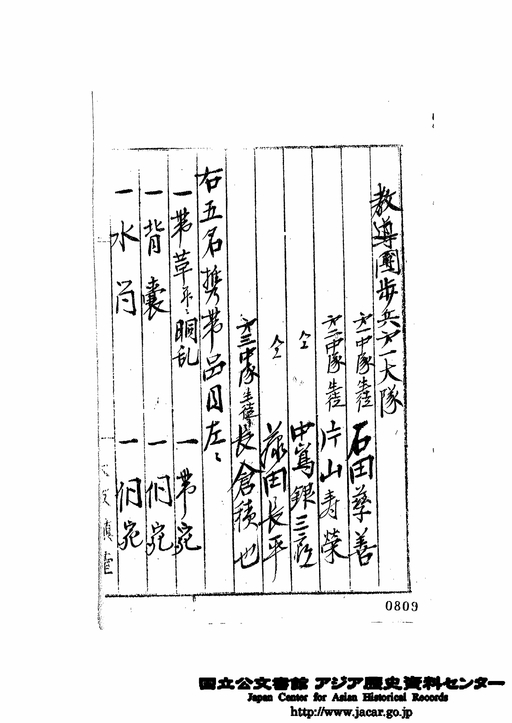 教導團歩兵㐧一大隊
㐧一中隊生徒 石田慈善
㐧二中隊生徒 片山寿榮
仝 中嶌録三郎
仝 藤田長平
㐧三中隊生徒 長倉積也
右五名携帯品目左ニ
一 帯革並ニ胴乱 一帯宛
一 背嚢 一個宛
一 水筒 一個宛
0809
国立公文書館 アジア歴史資料センター
Japan Center for Asian Historical Records
http://www.jacar.go.jp